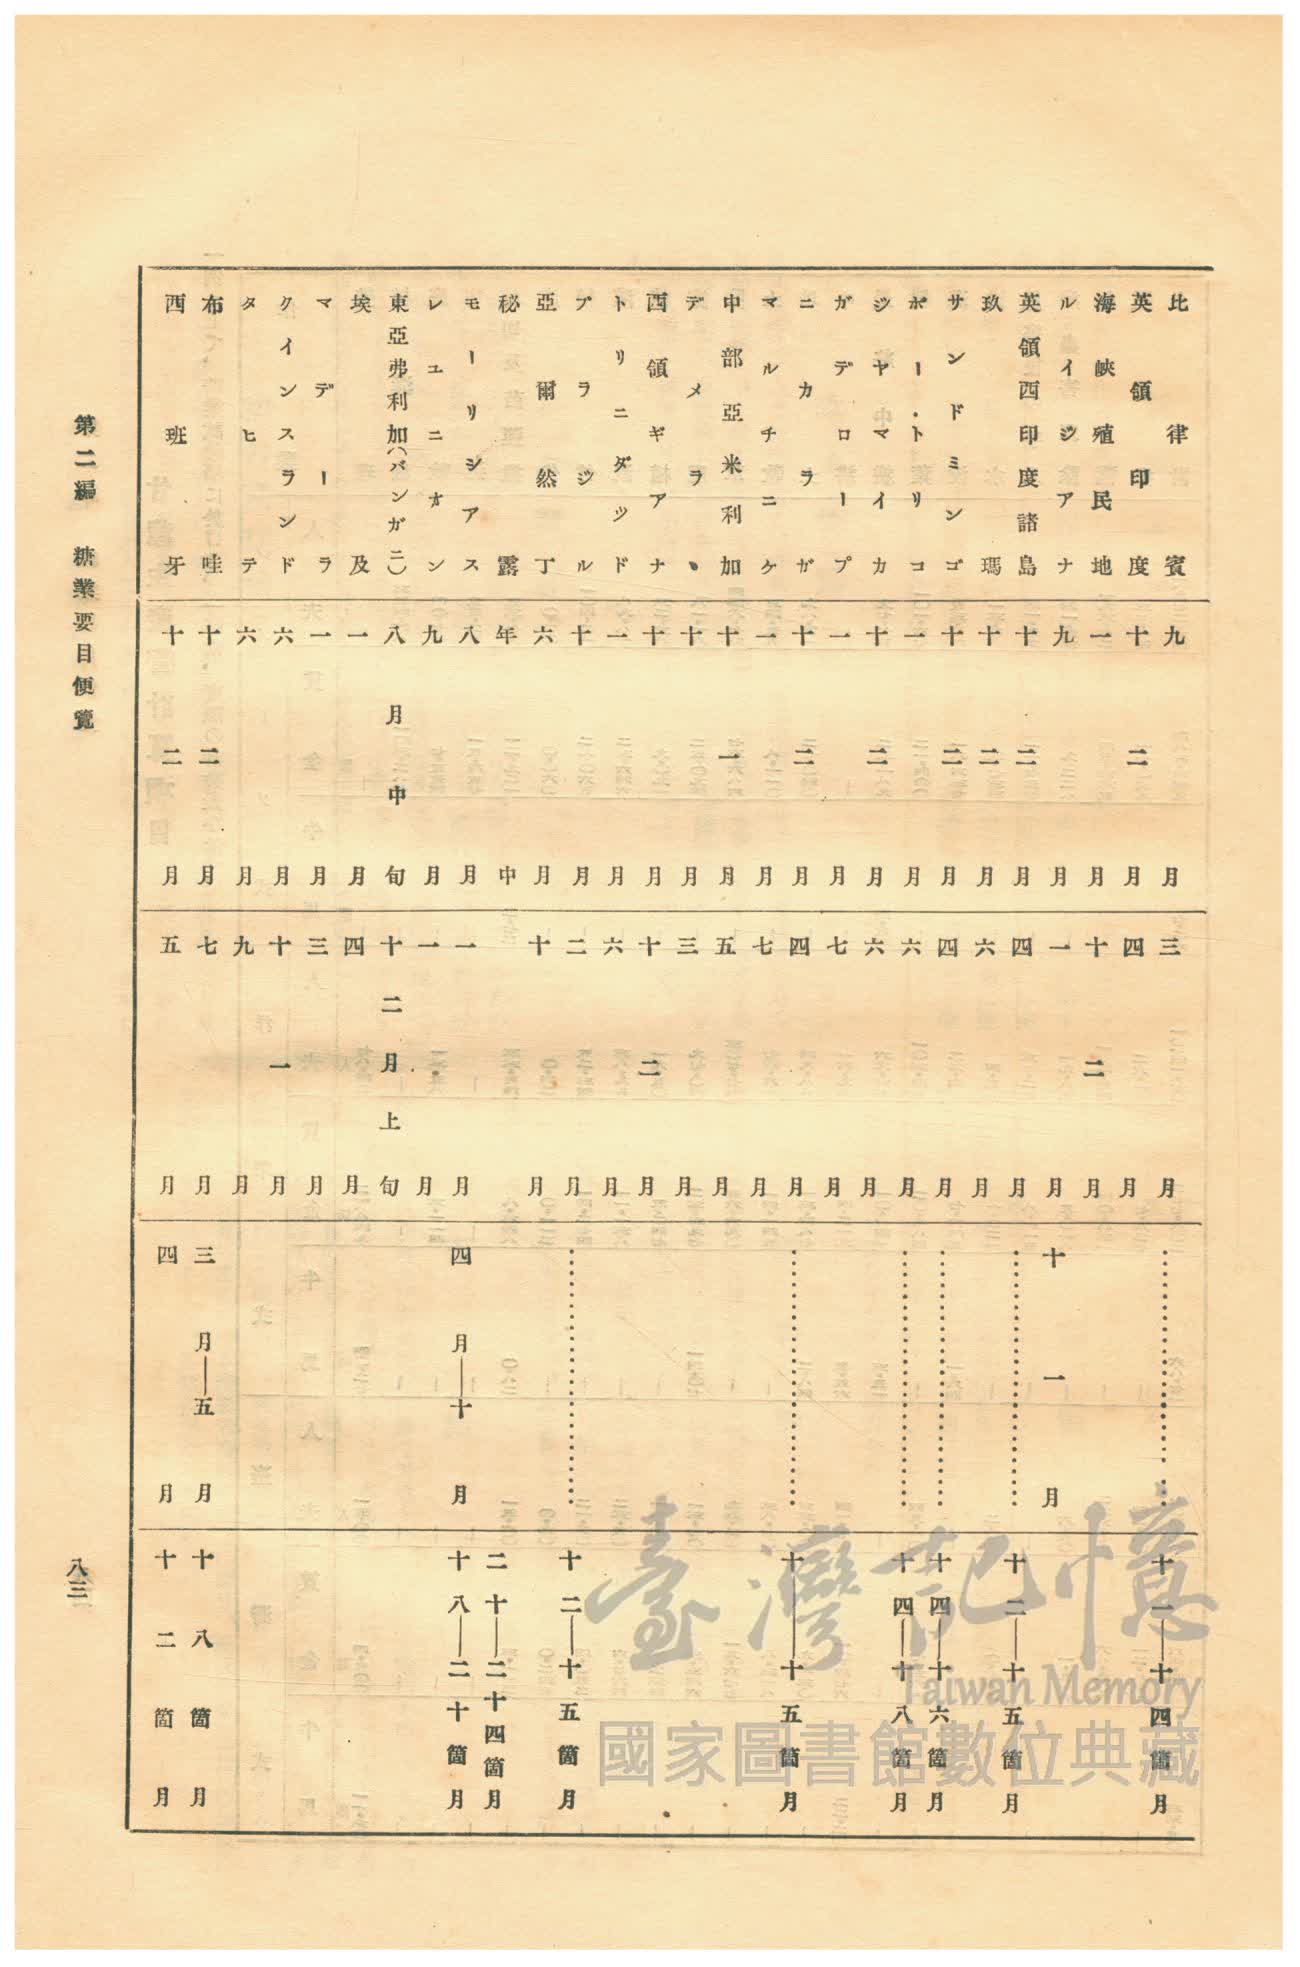 比律賓 九月 三月 …… 十一—十四箇月
英領印度 十二月 四月
海峽殖民地 一月 十二月
ルイジアナ 九月 一月 十一月
英領西印度諸島 十二月 四月 …… 十二—十五箇月
玖瑪 十二月 六月
サンドミンゴ 十二月 四月 …… 十四—十六箇月
ポー・トリコ 一月 六月 …… 十四—十八箇月
ジヤマイカ 十二月 六月
ガデロープ 一月 七月
ニカラガ 十二月 四月 …… 十—十五箇月
マルチニケ 一月 七月
中部亞米利加 十一月 五月
デメラヽ 十月 三月
西領ギアナ 十月 十二月
トリニダツド 一月 六月
ブラジル 十月 二月 …… 十二—十五箇月
亞爾然丁 六月 十月
秘露 年中 二十—二十四箇月
モーリシアス 八月 一月 四月—十月 十八—二十箇月
レユニオン 九月 一月
東亞弗利加(バンガニ) 八月中旬 十二月上旬
埃及 一月 四月
マデーラ 一月 三月
クインスランド 六月 十一月
タヒテ 六月 九月
布哇 十二月 七月 三月—五月 十八箇月
西班牙 十二月 五月 四月 十二箇月
第二編 糖業要目便覽
八三
臺灣記憶
Taiwan Memory
國家圖書館數位典藏